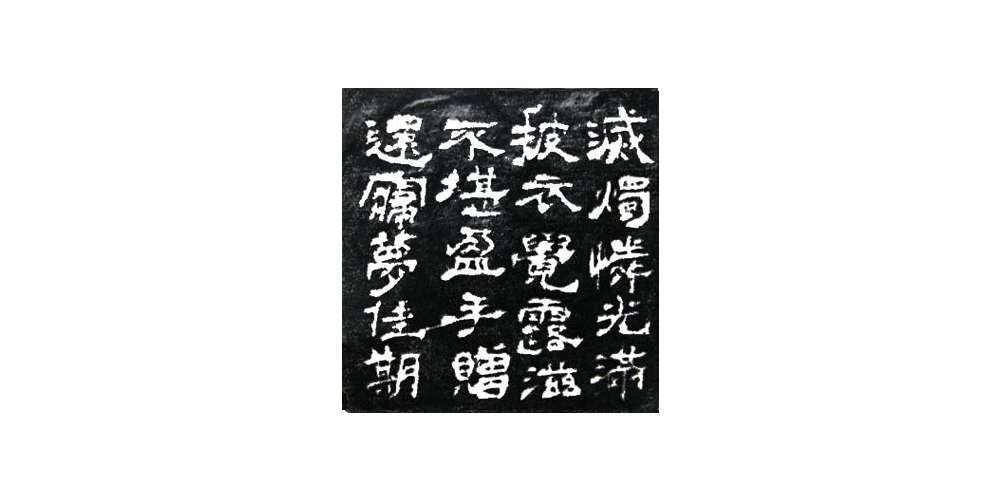 滅燭憐光滿
披衣覺露滋
不堪盈手贈
還寢夢佳期